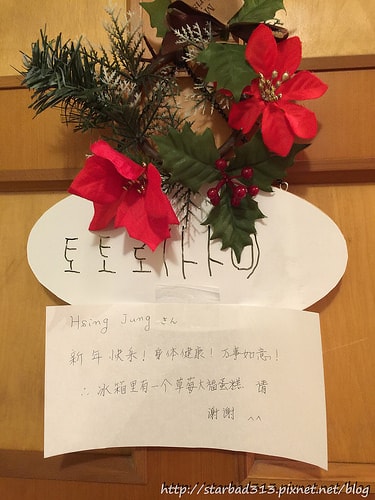 토토로하우
Hsing Jung さん
新年快乐！身体健康！万事如意！
∴冰箱里有一个草莓大福蛋糕 请
谢谢 ^^
http://starbad313.pixnet.net/blog